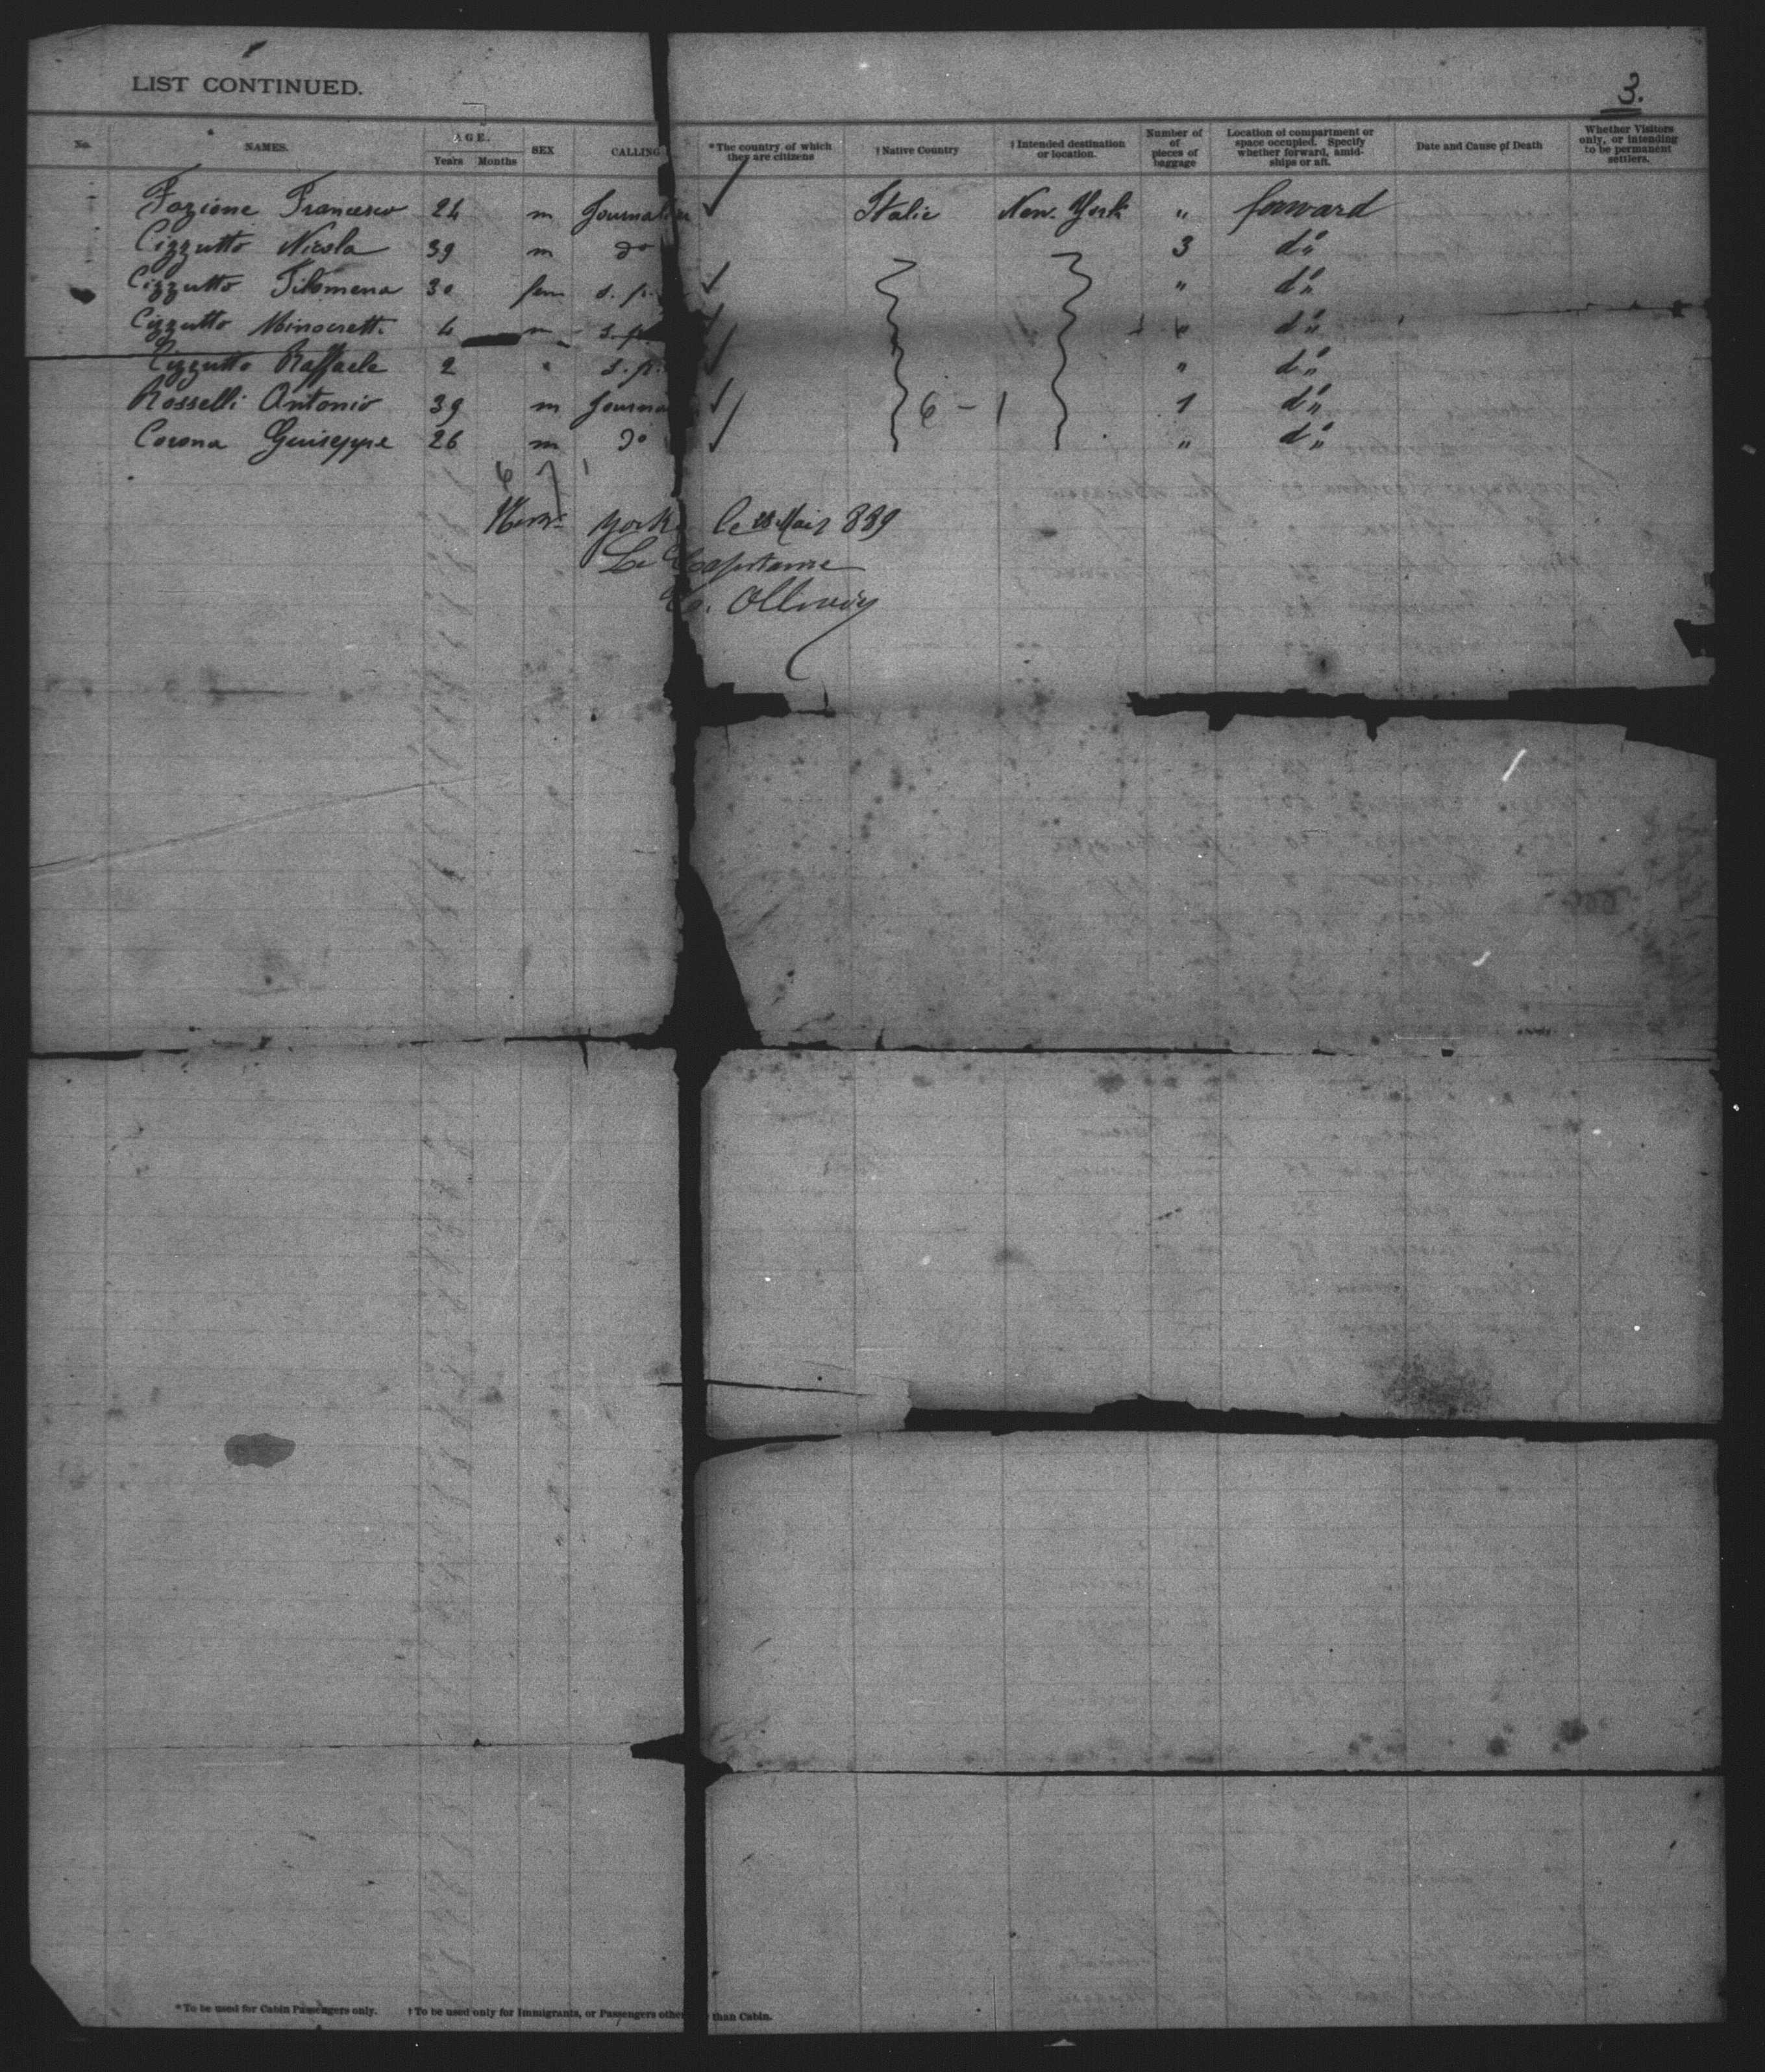 LIST CONTINUED.
3.
No. NAMES. AGE. Years Months SEX CALLING *The country of which they are citizens †Native Country †Intended destination or location. Number of pieces of baggage Location of compartment or space occupied. Specify whether forward, amidships or aft. Date and Cause of Death Whether Visitors only, or intending to be permanent settlers.
Fazione Francesco 24 m Journalier Italie New-York " forward
Cizzutto Nicola 39 m do 3 do
Cizzutto Filomena 30 fem s. p. " do
Cizzutto 4 m s. p. " do
Cizzutto Raffaele 2 " s. p. " do
Rosselli Antonio 39 m Journa 6-1 1 do
Corona Guiseppe 26 m do " do
6 1
New York le 28 Mai 1889
Le Capitaine
*To be used for Cabin Passengers only. †To be used only for Immigrants, or Passengers other than Cabin.